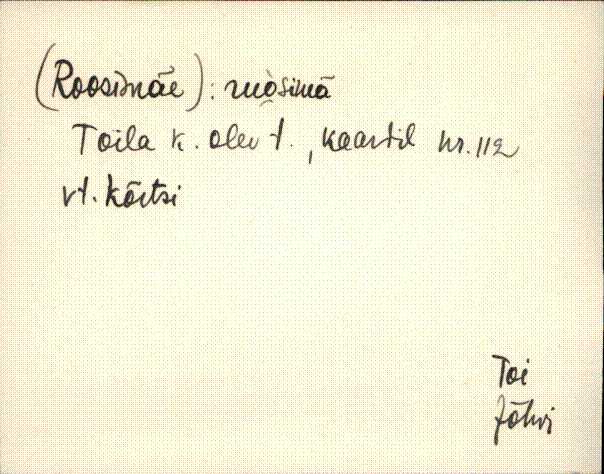 (Roosinäe): ruòsimä
Toila k. olev t., kaardil nr. 112
vt. kõrtsi
Toi
Jõhvi